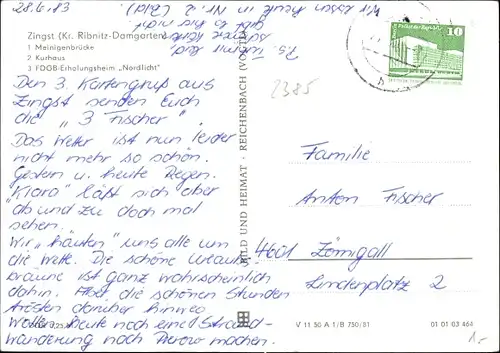 28.6.83
Wir essen heute in Nr. 2 (Bild)
Zingst (Kr. Ribnitz-Damgarten)
1 Meinigenbrücke
2 Kurhaus
3 FDGB-Erholungsheim „Nordlicht"
P.S.
10
2385
Den 3. Kartengruß aus
Zingst senden Euch
die „3 Fischer".
Das Wetter ist nun leider
nicht mehr so schön.
Gestern u. heute Regen.
"Klara" läßt sich aber
ab und zu doch mal
sehen.
Wir „häuten" uns alle um
die Wette. Die schöne Urlaubs-
bräune ist ganz wahrscheinlich
dahin. Aber die schönen Stunden
trösten darüber hinweg.
Wollen heute noch eine Strand-
wanderung nach Prerow machen.
BILD UND HEIMAT · REICHENBACH (VOGTL)
Familie
Anton Fischer
4601 Zörnigall
Lindenplatz 2
V 11 50 A 1/B 750/81
01 01 03 464
1,-